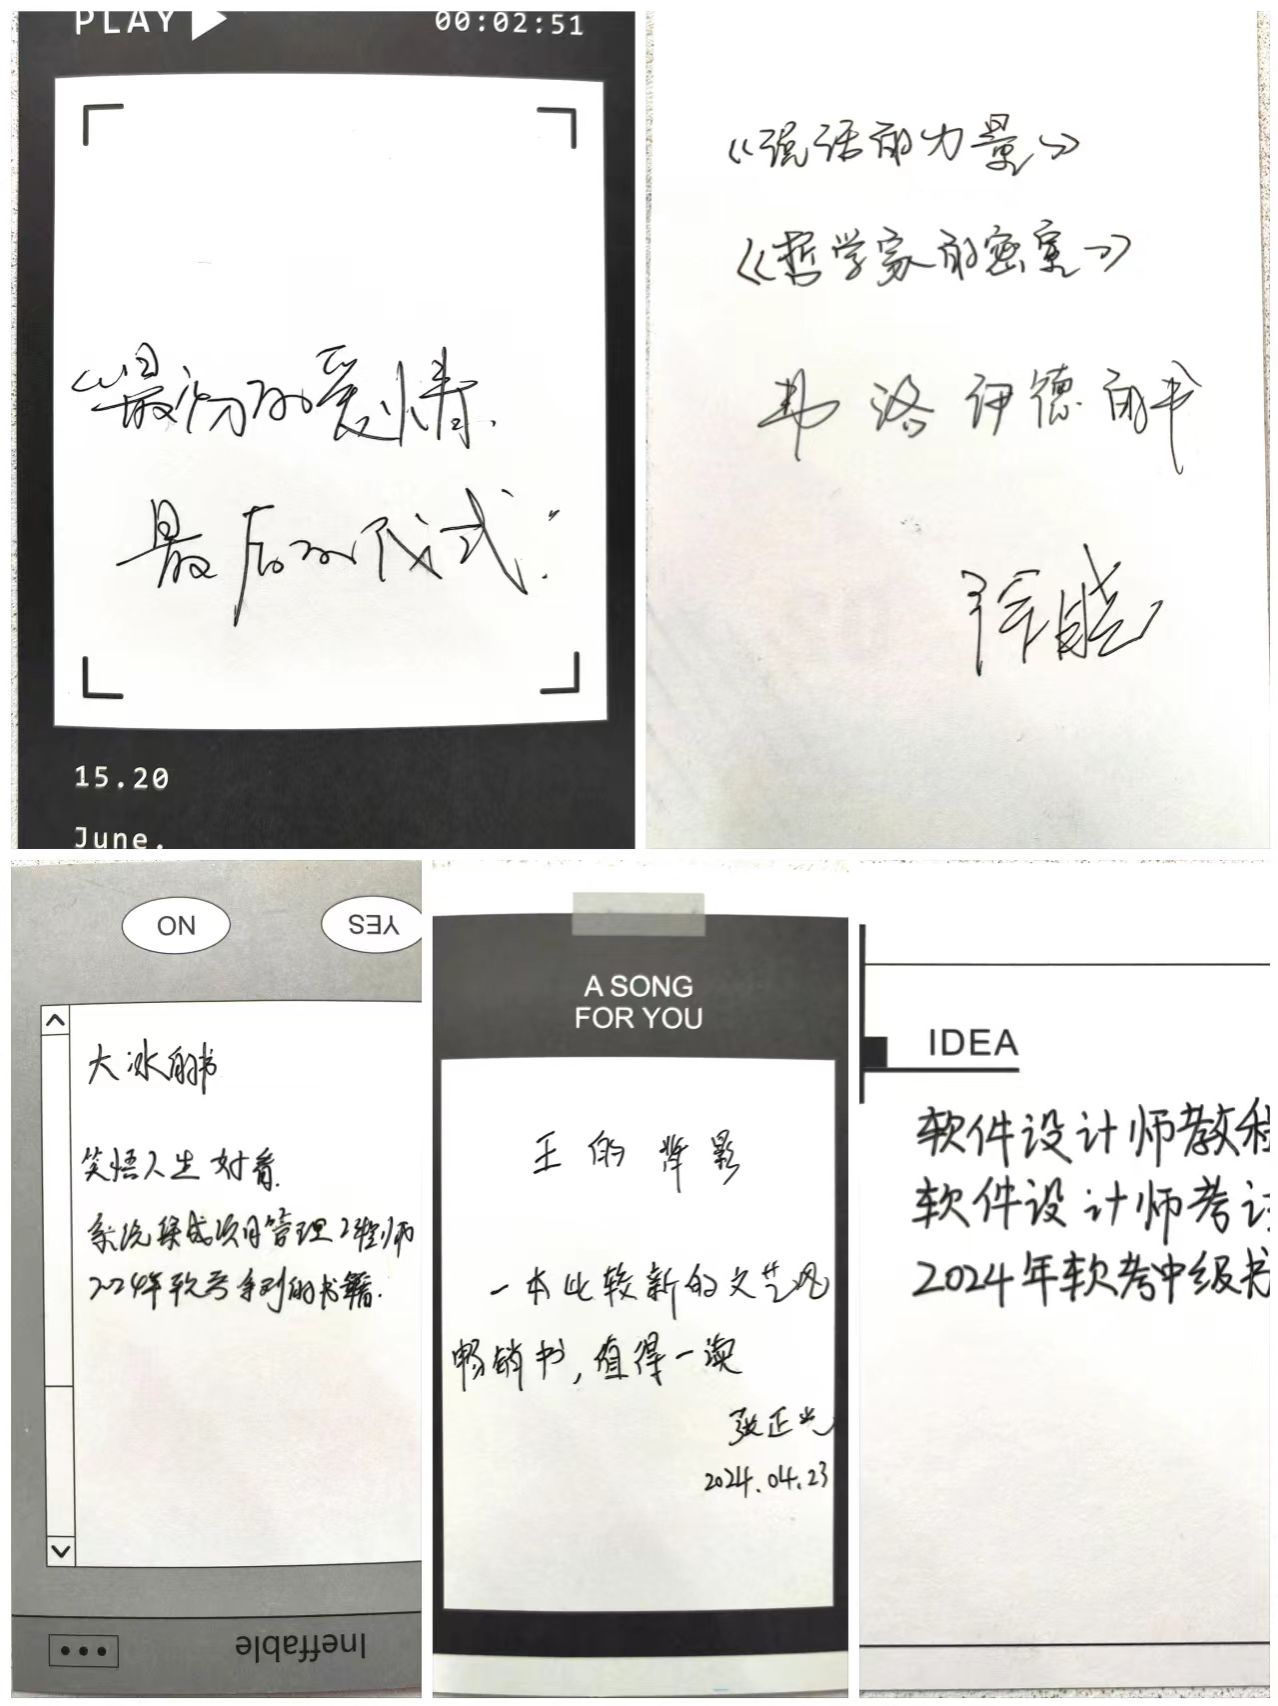 PLAY
00:02:51
《最初的爱情
最后的仪式》
15.20
June.
《说话的力量》
《哲学家的密室》
弗洛伊德的书
NO
YES
大冰的书
笑悟人生 好看.
系统集成项目管理工程师
2024年软考系列的书籍.
Ineffable
A SONG
FOR YOU
王的背影
一本比较新的文艺风
畅销书,值得一读
张正光
2024.04.23
IDEA
软件设计师教程
软件设计师考试
2024年软考中级书